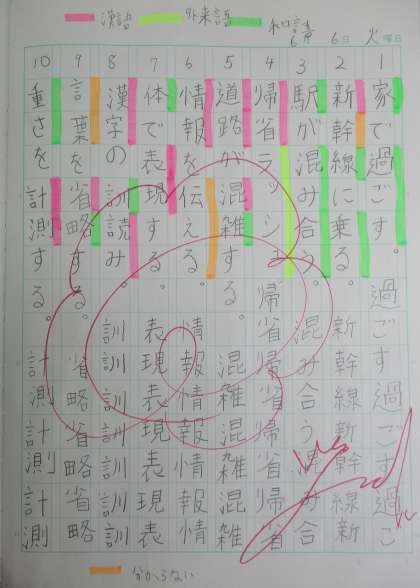 漢語 外来語 和語
6月 6日 火曜日
1 家で過ごす。 過ごす過ごす過ご
2 新幹線に乗る。 新幹線新幹線新
3 駅が混み合う。 混み合う混み合
4 帰省ラッシュ 帰省帰省帰省帰省
5 道路が混雑する。 混雑混雑混雑
6 情報を伝える。 情報情報情報情
7 体で表現する。 表現表現表現表
8 漢字の訓読み。 訓訓訓訓訓訓訓
9 言葉を省略する。 省略省略省略
10 重さを計測する。 計測計測計測
分からない